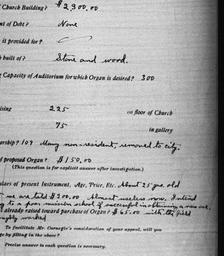 Church Building? $2,900.00
nt of Debt? None
it is provided for?
built of? Stone and wood.
g Capacity of Auditorium for which Organ is desired? 300
ising 225 on floor of Church
75 in gallery
ership? 109 Many non-resident, removed to city.
f proposed Organ? $150.00
(This question is for explicit answer after investigation.)
ulars of present Instrument, Age, Price, Etc. About 25 yrs. old
we are told $200.00 Almost useless now. I intend
to a poor mission school if successful in obtaining a new one.
already raised toward purchase of Organ? $65.00 with the field
worked
To facilitate Mr. Carnegie's consideration of your appeal, will you
ge by filling in the above?
Precise answer to each question is necessary.